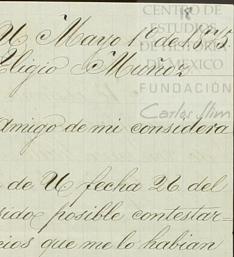 CENTRO DE
ESTUDIOS
DE HISTORIA
DE MEXICO
FUNDACIÓN
Carlos Slim
U, Mayo 1º de 1875.
Eligio Muñoz
amigo de mi considera
de U fecha 26 del
sido posible contestar=
cios que me lo habian